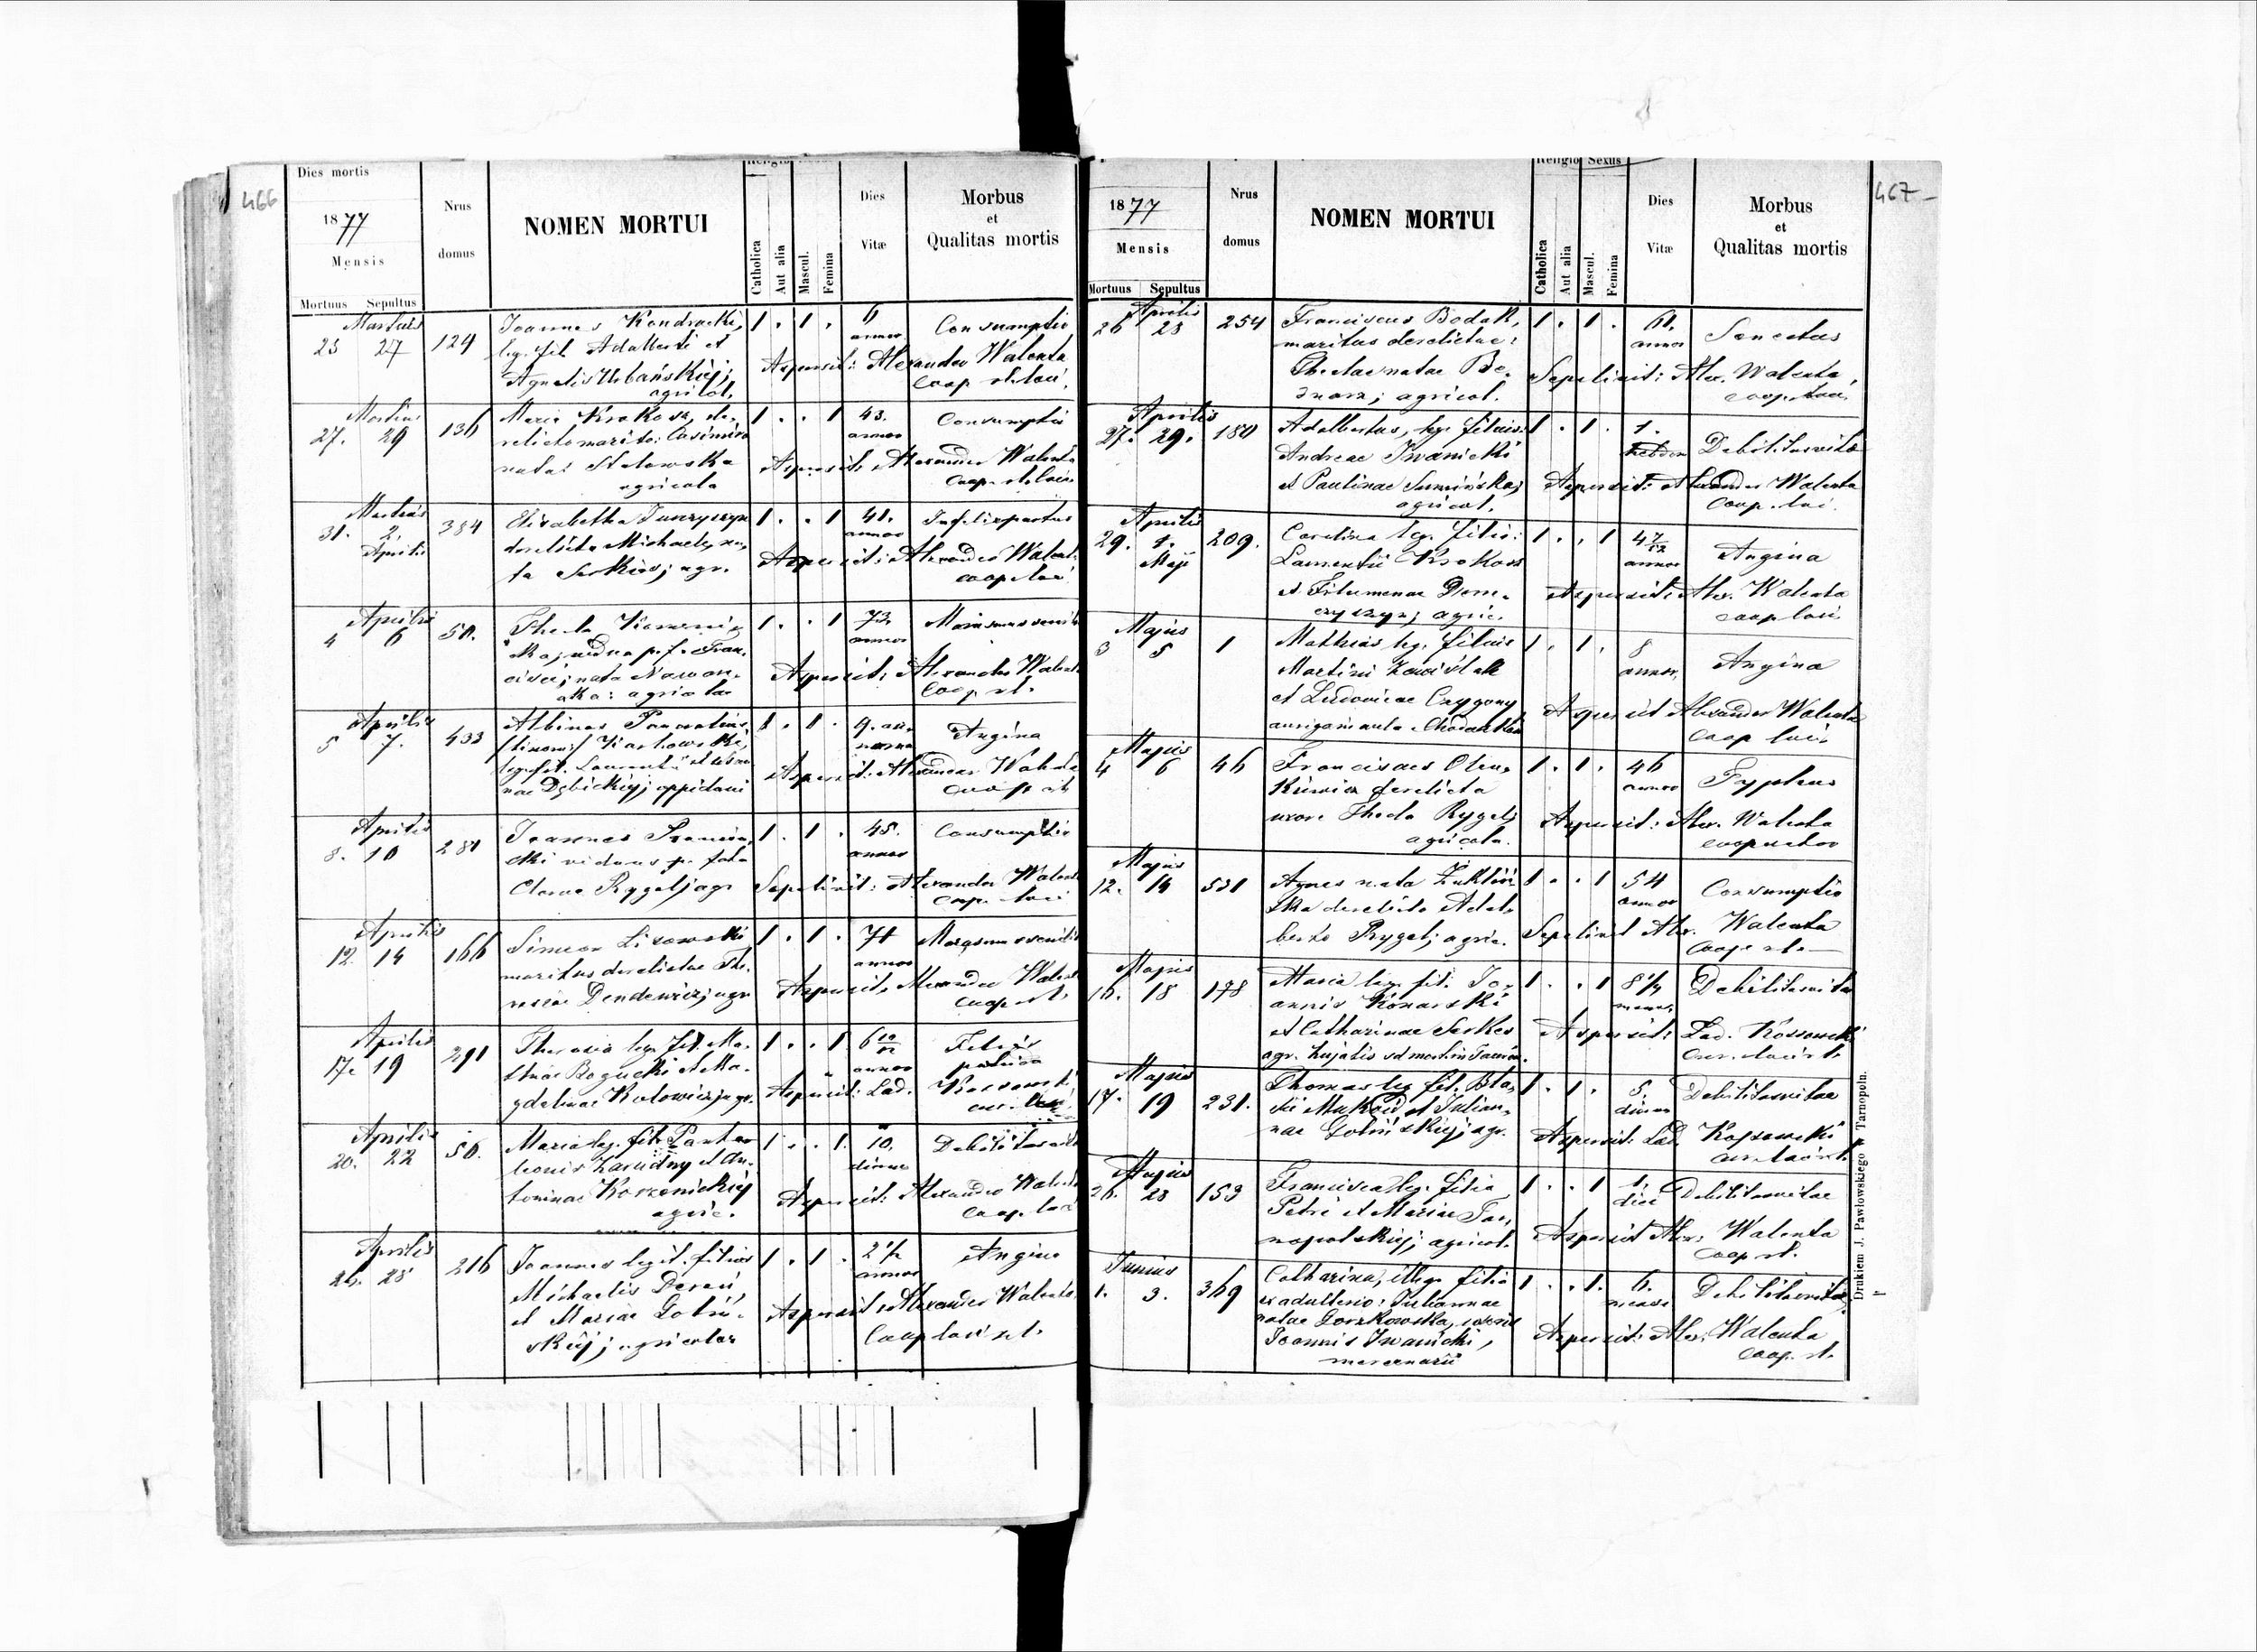 466
Dies mortis
1877
Mensis
Mortuus Sepultus
Nrus
domus
NOMEN MORTUI
Religio
Catholica
Aut alia
Mascul.
Femina
Dies
Vitæ
Morbus
et
Qualitas mortis
Martius
25 27 124
Joannes Kondracki,
leg. fil. Adalberti et
Agnetis Urbańskiej;
agricol.
1 . 1 .
6
annor
Consumptio
Aspersit: Alexander Walenta
coop. loci.
Martius
27. 29 136
Maria Krokosz, de-
relicto marito: Casimiro
nata: Stelowska
agricola
1 . . 1
43.
annor
Consumptio
Aspersit: Alexander Walenta
coop.
Martius
31. 2. 384
Aprilis
Elisabetha
derelicto Michaele, na-
ta Serkies; agr.
1 . . 1
41.
annor
Infelix partus
Aspersit: Alexander Walenta
coop. loci
Aprilis
4 6 50.
Thecla
vidua p. f. Fran-
cisci; nata
agricolae
1 . . 1
73.
annor
Marasmus senilis
Aspersit: Alexander Walenta
Coop.
Aprilis
5 7. 433
Albinus
Karkowski,
leg. fil. Laurentii et
nae Dębickiej; oppidani
1 . 1 .
9.
Angina
Aspersit: Alexander Walenta
coop
Aprilis
8. 10 281
Joannes
viduus p. fata
Clarae Rygel; agr
1 . 1 .
45.
annor
Consumptio
Sepelivit: Alexander Walenta
coop. loci
Aprilis
12. 14 166
Simeon Lisowski
maritus derelictae The-
resiae Dendewicz; agr
1 . 1 .
71
annor
Marasmus senilis
Aspersit: Alexander Walenta
coop
Aprilis
17. 19 291
Theresia leg. fil. Ma-
thiae Bogucki et Ma-
gdalenae Kotowicz; agr.
1 . . 1
6 10/12
annor
Febris
Aspersit: Lad. Kossowski
Aprilis
20. 22 56.
Maria leg. filia Panta-
leonis Zarudny et An-
toninae Korzenickiej
agric.
1 . . 1.
10.
dierum
Debilitas vitae
Aspersit: Alexander Walenta
Coop. loci
Aprilis
28 216
Joannes legit. filius
Michaelis Dereń,
et Mariae Gołiń-
skiej; agricolae
1 . 1 .
2 1/2
annor
Angina
Aspersit: Alexander Walenta
Coop loci
467
1877
Mensis
Mortuus Sepultus
Nrus
domus
NOMEN MORTUI
Religio Sexus
Catholica
Aut alia
Mascul.
Femina
Dies
Vitæ
Morbus
et
Qualitas mortis
Aprilis
26 28 254
Franciscus Bodak,
maritus derelictae:
Theclae natae Be-
dnarz; agricol.
1 . 1 .
61.
annor
Senectus
Sepelivit: Alex. Walenta,
coop. loci
Aprilis
27. 29. 180
Adalbertus, leg. filius:
Andreae Iwanicki
et Paulinae Sumińska;
agricol.
1 . 1 .
1.
hebdom
Debilitas vitae
Aspersit: Alexander Walenta
Coop. loci.
Aprilis
29. 1. 209.
Maji
Carolina leg. filia:
Laurentii Krokosz
et Filumenae Dem-
czyszyn; agric.
1 . . 1
4 7/12
annor
Angina
Aspersit: Alex. Walenta
coop loci
Majus
3 5 1
Mathias leg. filius
Martini Zawiślak
et Ludovicae Czygony
1 . 1 .
8
annor.
Angina
Aspersit Alexander Walenta
Coop loci
Majus
4 6 46
Franciscus Olen-
kiewicz derelicta
uxore Thecla Rygel;
agricola.
1 . 1 .
46
annor
Typhus
Aspersit: Alex. Walenta
cooperator
Majus
12. 14 531
Agnes nata Żukliń-
ska derelicto Adal-
berto Rygel; agric.
1 . . 1
54
annor
Consumptio
Sepelivit Alex. Walenta
Coop.
Majus
16. 18 178
Maria leg. fil. Jo-
annis Konarski
et Catharinae Serkes
1 . . 1
8 1/4
Debilitas vitae
Aspersit: Lad. Kossowski
Majus
17. 19 231.
Thomas leg fil. Bla-
sii Mukoid et Julian-
nae Gołińskiej; agr.
1 . 1 .
5.
dierum
Debilitas vitae
Aspersit: Lad. Kossowski
Majus
26. 28 153
Francisca leg. filia
Petri et Mariae Tar-
nopolskiej; agricol.
1 . . 1
1.
diei
Debilitas vitae
Aspersit Alex. Walenta
Coop.
Junius
1. 3. 369
Catharina, illeg. filia
ex adulterio: Juliannae
natae Gorzkowska, uxoris
Joannis Iwanicki,
mercenarii
1 . . 1.
6.
Debilitas vitae
Aspersit: Alex. Walenta
coop.
Drukiem J. Pawłowskiego w Tarnopolu.